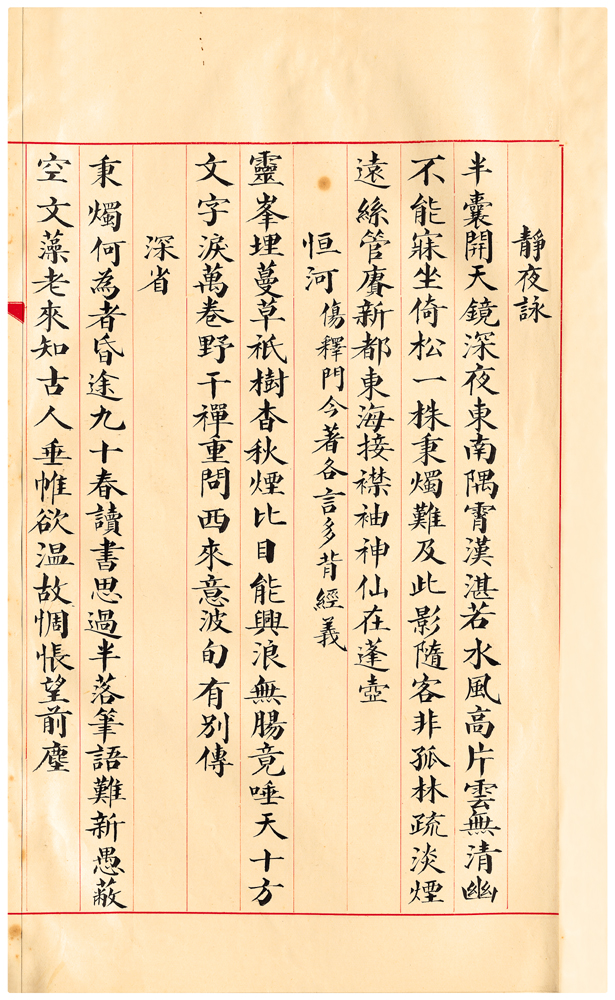 靜夜詠
半囊開天鏡深夜東南隅霄漢湛若水風高片雲無清幽
不能寐坐倚松一株秉燭難及此影隨客非孤林疏淡煙
遠絲管賡新都東海接襟袖神仙在蓬壺
恒河 傷釋門今著各言多背經義
靈峯埋蔓草祇樹杳秋煙比目能興浪無腸竟唾天十方
文字淚萬卷野干禪重問西來意波旬有別傳
深省
秉燭何為者昏途九十春讀書思過半落筆語難新愚蔽
空文藻老來知古人垂帷欲温故惆悵望前塵